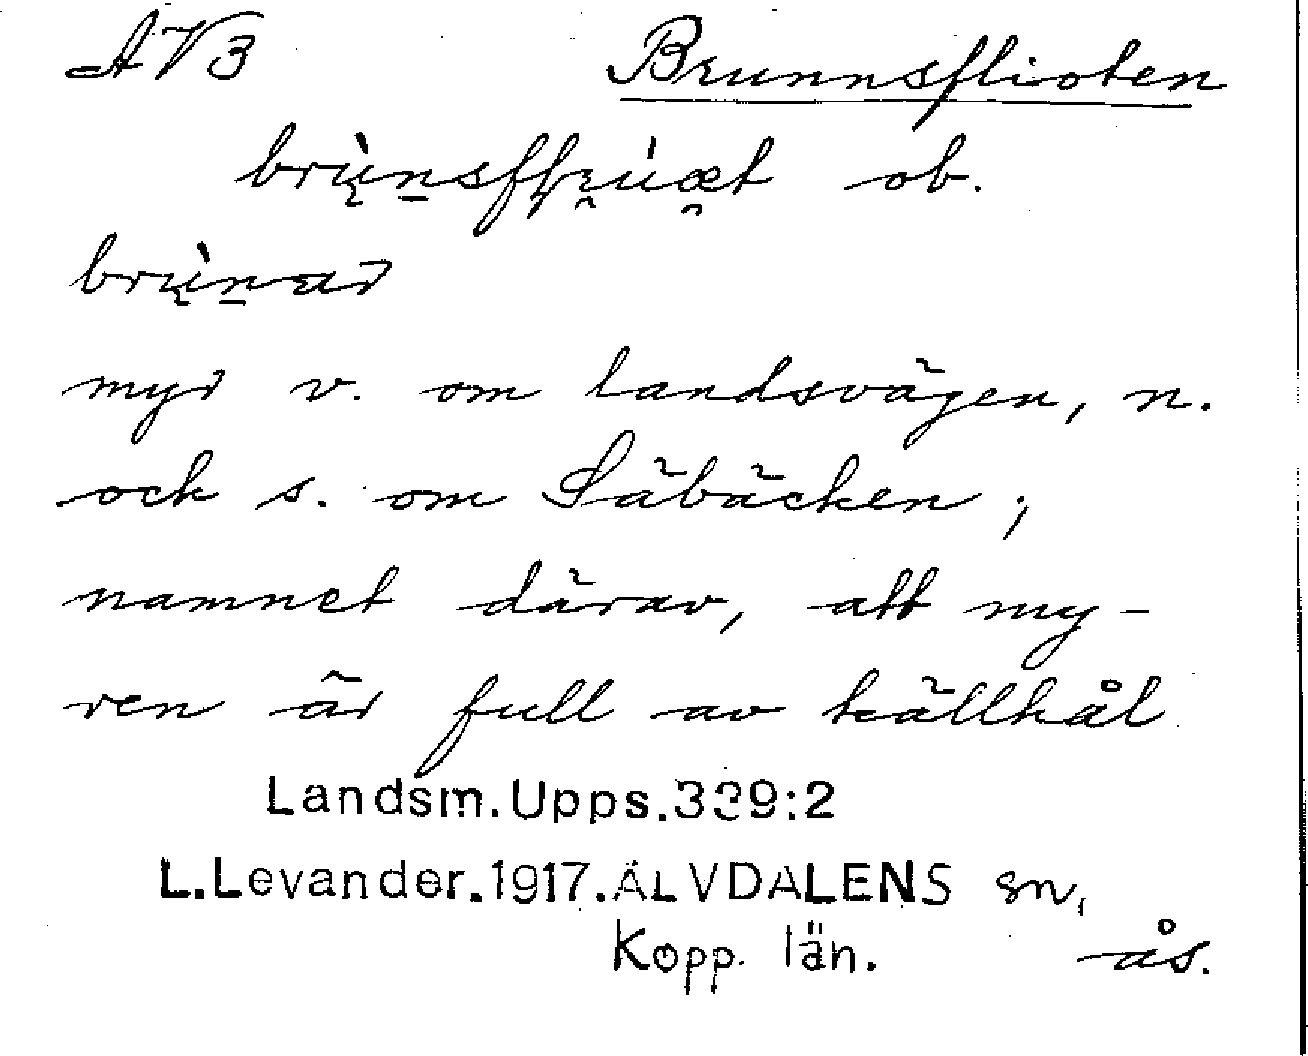 AV3 Brunnsflioten
ob.
myr v. om landsvägen, n.
ock s. om Säbäcken;
namnet därav, att my-
ren är full av källhål
Landsm. Upps. 339:2
L. Levander. 1917. ÄLVDALENS sn,
Kopp. län. ås.